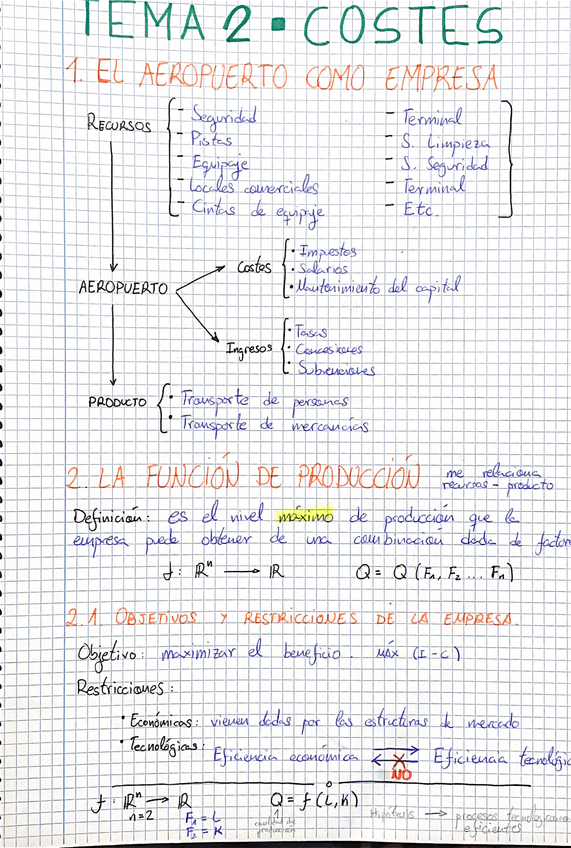 TEMA 2 • COSTES
1. EL AEROPUERTO COMO EMPRESA
RECURSOS
- Seguridad
- Pistas
- Equipaje
- Locales comerciales
- Cintas de equipaje
- Terminal
- S. Limpieza
- S. Seguridad
- Terminal
- Etc.
AEROPUERTO
Costes
• Impuestos
• Salarios
• Mantenimiento del capital
Ingresos
• Tasas
• Concesiones
• Subvenciones
PRODUCTO
• Transporte de personas
• Transporte de mercancías
2. LA FUNCIÓN DE PRODUCCIÓN
me relaciona
recursos - producto
Definición: es el nivel máximo de producción que la
empresa puede obtener de una combinación dada de factor
f: ℝⁿ → ℝ Q = Q (F₁, F₂ ... Fₙ)
2.1. OBJETIVOS Y RESTRICCIONES DE LA EMPRESA.
Objetivo: maximizar el beneficio. MÁX (I - C)
Restricciones:
• Económicas: vienen dadas por las estructuras de mercado
• Tecnológicas: Eficiencia económica Eficiencia tecnológic
NO
f: ℝⁿ → ℝ Q = f (L, K)
n=2
F₁ = L
F₂ = K
cantidad de
producción
Hipótesis → procesos tecnológicame
eficientes